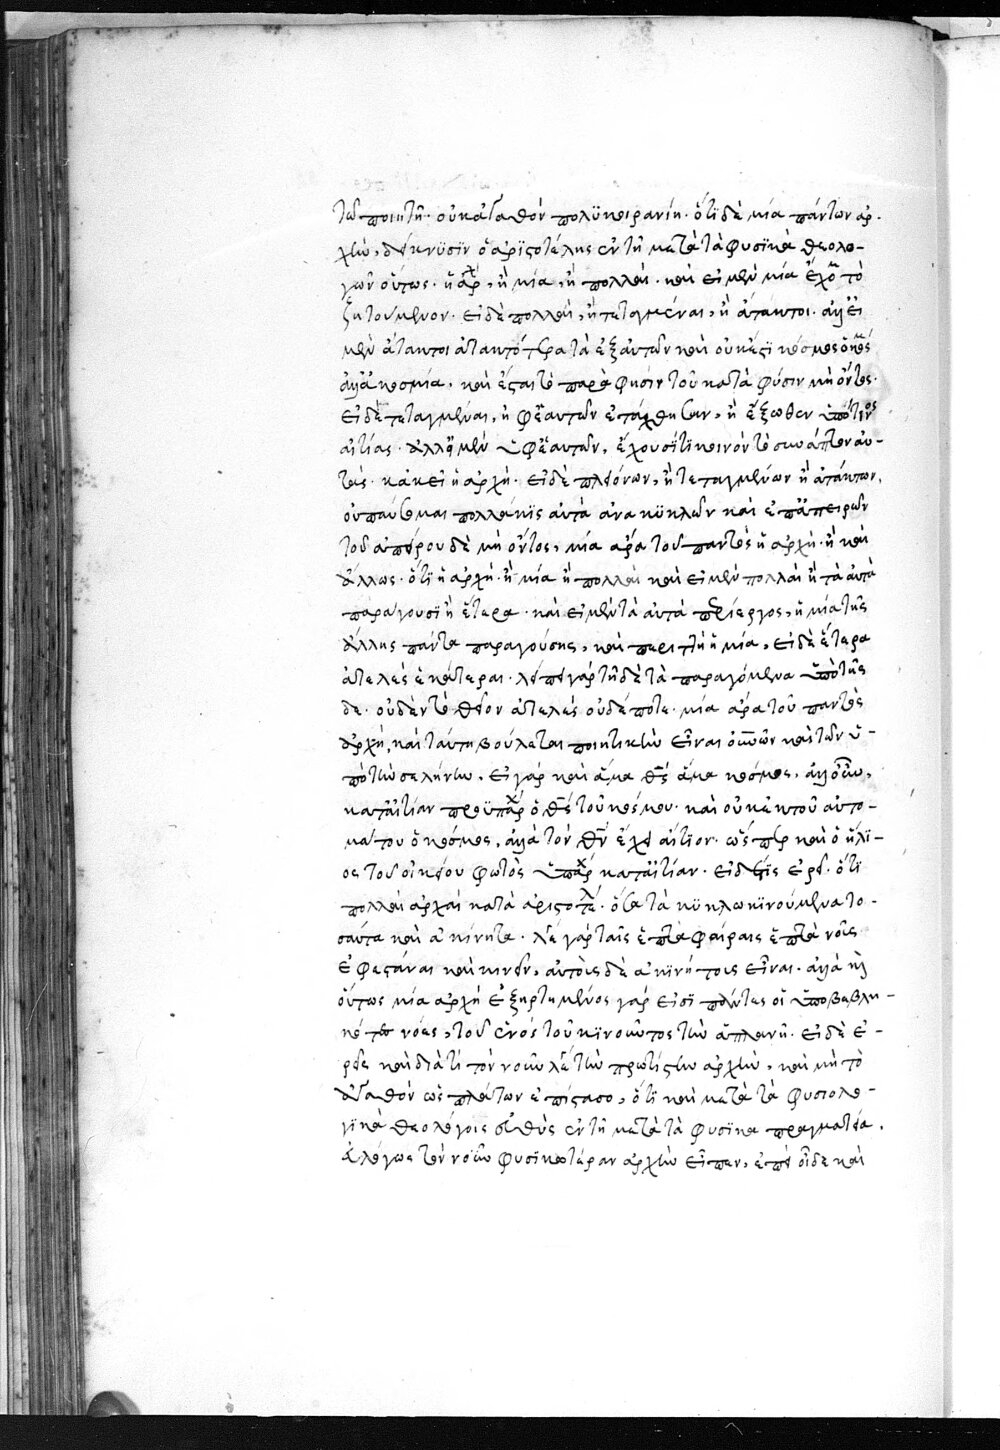 τῷ ποιητῇ· οὐκ ἀγαθὸν πολϋκοιρανίη· ὅτϊ δὲ μία πάντων ἀρ-
χὴν, δείκνϋσϊν ὁ ἀρϊστοτέλης ἐν τῇ μετὰ τὰ φυσϊκὰ θεολο-
γῶν οὕτως· ἡ ἀρχ, ἢ μία, ἢ πολλαὶ· καὶ εἰ μὲν μία ἔχομ τὸ
ζητούμενον· εἰ δὲ πολλαὶ, ἢ τεταγμέναι, ἢ ἄτακτοι· ἀλλ' εἰ
μὲν ἄτακτοι ἀτακτότερα τὰ ἐξ αὐτῶν καὶ οὐκ ἔστϊ κόσμος ὁ κόσμος
ἀλλ' ἀκοσμία, καὶ ἔσται τὸ παρὰ φύσϊν τοῦ κατὰ φύσιν μὴ ὄντος·
εἰ δὲ τεταγμέναι, ἢ ὑφ' ἑαυτῶν ἐτάχθησαν, ἢ ἔξωθεν ὑπό τινος
αἰτίας· ἀλλ' εἰ μὲν ὑφ' ἑαυτῶν, ἔχουσί τϊ κοινὸν τὸ συνάπτον αὐ-
τὰς· κἀκεῖ ἡ ἀρχὴ· εἰ δὲ πλειόνων, ἢ τεταγμένων ἢ ἀτάκτων,
οὐ παύσομαι πολλάκϊς αὐτὰ ἀνακϋκλῶν καὶ ἐπ' ἄπειρον
τοῦ ἀπείρου δὲ μὴ ὄντος, μία ἄρα τοῦ παντὸς ἡ ἀρχὴ· ἢ καὶ
ἄλλως· ὅτϊ ἡ ἀρχὴ· ἢ μία ἢ πολλαὶ καὶ εἰ μὲν πολλαὶ ἢ τὰ αὐτὰ
παράγουσϊ ἢ ἕτερα· καὶ εἰ μὲν τὰ αὐτὰ περίεργος, ἡ μία τῆς
ἄλλης πάντα παραγούσης, καὶ περιττὴ ἡ μία, εἰ δὲ ἕτερα
ἀτελὲς ἑκάτεραι· λείπει γὰρ τῇδε τὰ παραγόμενα ὑπὸ τῆσ
δε· οὐδὲν τὸ θεῖον ἀτελὲς οὐδέποτε· μία ἄρα τοῦ παντὸς
ἀρχὴ, καὶ ταύτη βούλεται ποιητικὴν εἶναι καὶ τῶν ὑ-
πὸ τὴν σελήνην, εἰ γὰρ καὶ ἅμα θεὸς ἅμα κόσμος, ἀλλ'
κατ' αἰτίαν προϋπάρχ ὁ θεὸς τοῦ κόσμου· καὶ οὐκ ἐκ τοῦ αὐτο-
μάτου ὁ κόσμος, ἀλλὰ τὸν θν ἔχει αἴτϊον· ὥσπερ καὶ ὁ ἥλϊ-
ος τοῦ οἰκείου φωτὸς ὑπάρχ κατ' αἰτίαν· εἰ δέ τϊς ἐρεῖ· ὅτϊ
πολλαὶ ἀρχαὶ κατὰ ἀρϊστοτέλ· ὅσα τὰ κϋκλω κϊνούμενα το-
σαῦτα καὶ ἀκίνητα· λέγει γὰρ ταῖς ἑπτὰ σφαίραις ἑπτὰ νοῦς
ἐφεστάναι καὶ κινεῖν, αὐτοὺς δὲ ἀκϊνήτους εἶναι· ἀλλὰ καὶ
οὕτως μία ἀρχὴ ἐξηρτημένος γὰρ εἰσὶ πάντες οἱ ὑποβεβλη-
κό τες νόες, τοῦ ἑνὸς τοῦ κϊνοῦντος τὴν ἀπλανῆ· εἰ δὲ ἐ-
ρεῖς καὶ διὰ τί τὸν νοῦν λέγει τὴν πρωτίστην ἀρχὴν, καὶ μὴ τὸ
ἀγαθὸν ὡς πλάτων ἐπίστασο, ὅτϊ καὶ μετὰ τὰ φυσιολο-
γϊκὰ θεολόγοις εὐθὺς ἐν τῇ μετὰ τὰ φυσϊκα πραγματεία,
ἀλόγως τὸν νοῦν φυσϊκωτέραν ἀρχὴν εἶπεν, ἐπεὶ οἶδε καὶ